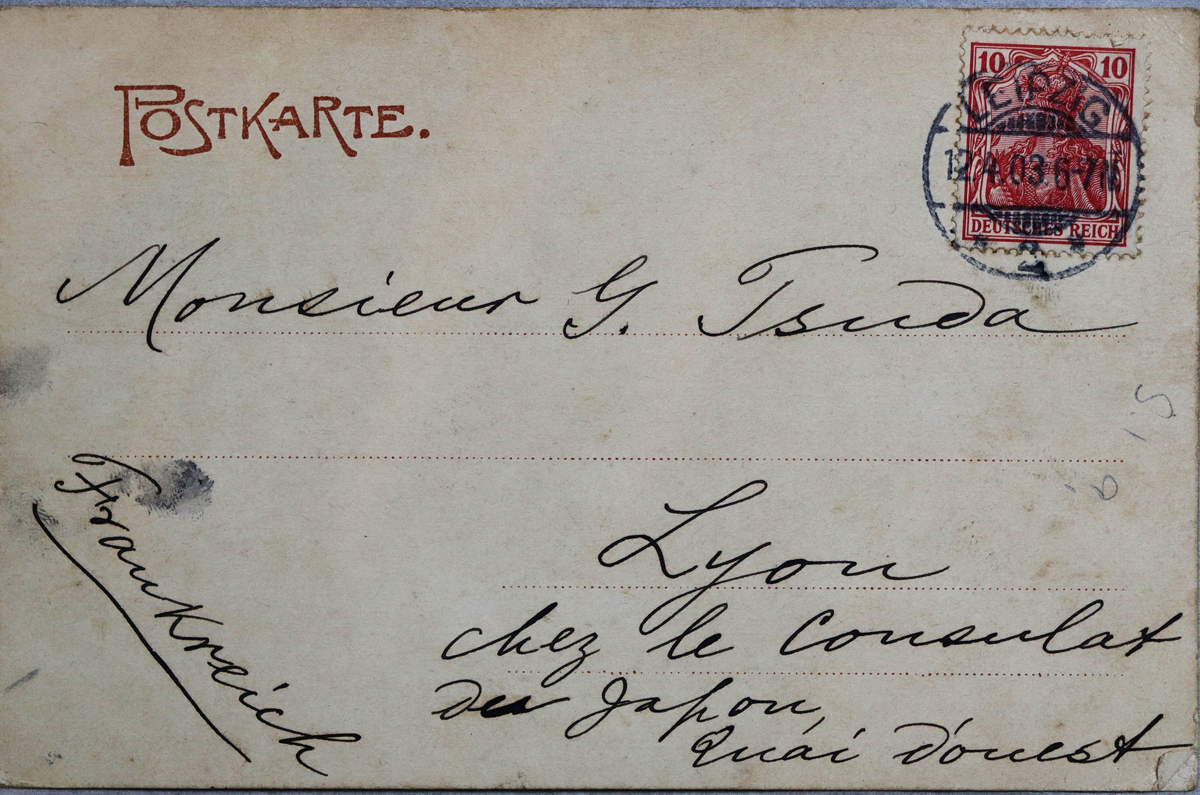 POSTKARTE.
10 10
LEIPZIG
12.4.03.6-7N
2
DEUTSCHES REICH
Monsieur G. Tsuda
Frankreich
Lyon
chez le Consulat
du Japon,
Quai d'ouest